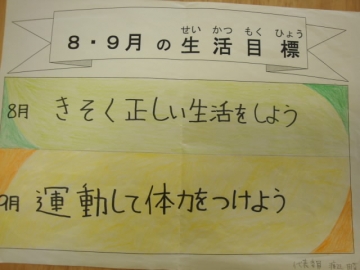 せい かつ もく ひょう
8・9月の生活目標
8月 きそく正しい生活をしよう
9月 運動して体力をつけよう